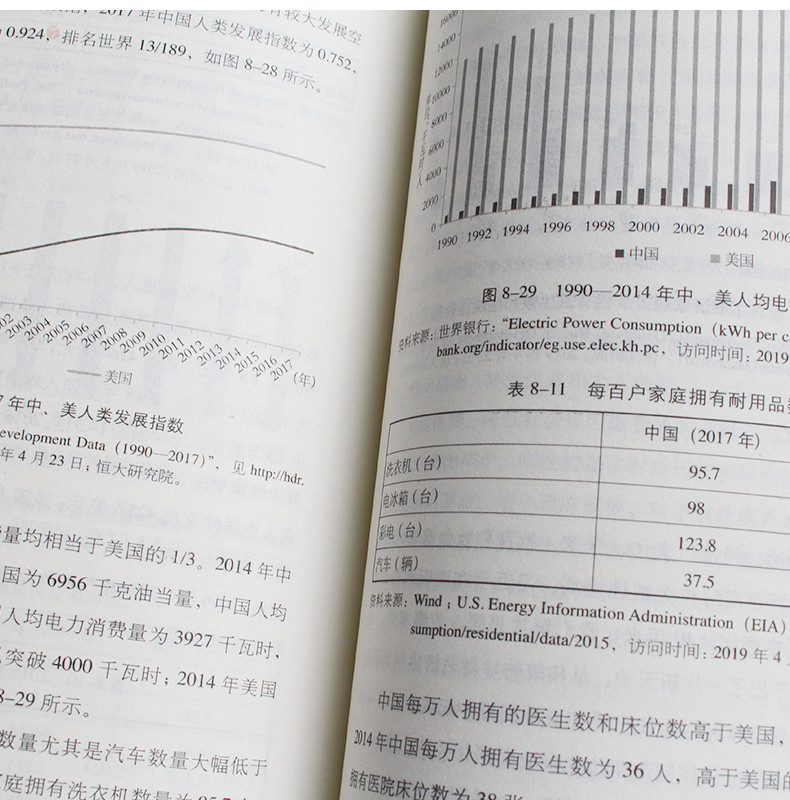 2017年中国人类发展指数为0.752,
0.924,排名世界13/189,如图8–28所示。
2003
2004
2005
2006
2007
2008
2009
2010
2011
2012
2013
2014
2015
2016
2017
(年)
美国
年中、美人类发展指数
evelopment Data(1990—2017)”,见http://hdr.
年4月23日;恒大研究院。
量均相当于美国的1/3。2014年中
国为6956千克油当量,中国人均
人均电力消费量为3927千瓦时,
突破4000千瓦时;2014年美国
8–29所示。
数量尤其是汽车数量大幅低于
庭拥有洗衣机数量为95.7
16000
14000
12000
10000
8000
6000
4000
2000
0
1990 1992 1994 1996 1998 2000 2002 2004 2006
中国 美国
图8–29 1990—2014年中、美人均电
资料来源:世界银行:“Electric Power Consumption(kWh per ca
bank.org/indicator/eg.use.elec.kh.pc,访问时间:2019
表8–11 每百户家庭拥有耐用品数
中国(2017年)
洗衣机(台) 95.7
电冰箱(台) 98
彩电(台) 123.8
汽车(辆) 37.5
资料来源:Wind;U.S. Energy Information Administration(EIA)
sumption/residential/data/2015,访问时间:2019年4
中国每万人拥有的医生数和床位数高于美国,
2014年中国每万人拥有医生数为36人,高于美国的
拥有医院床位数为38张